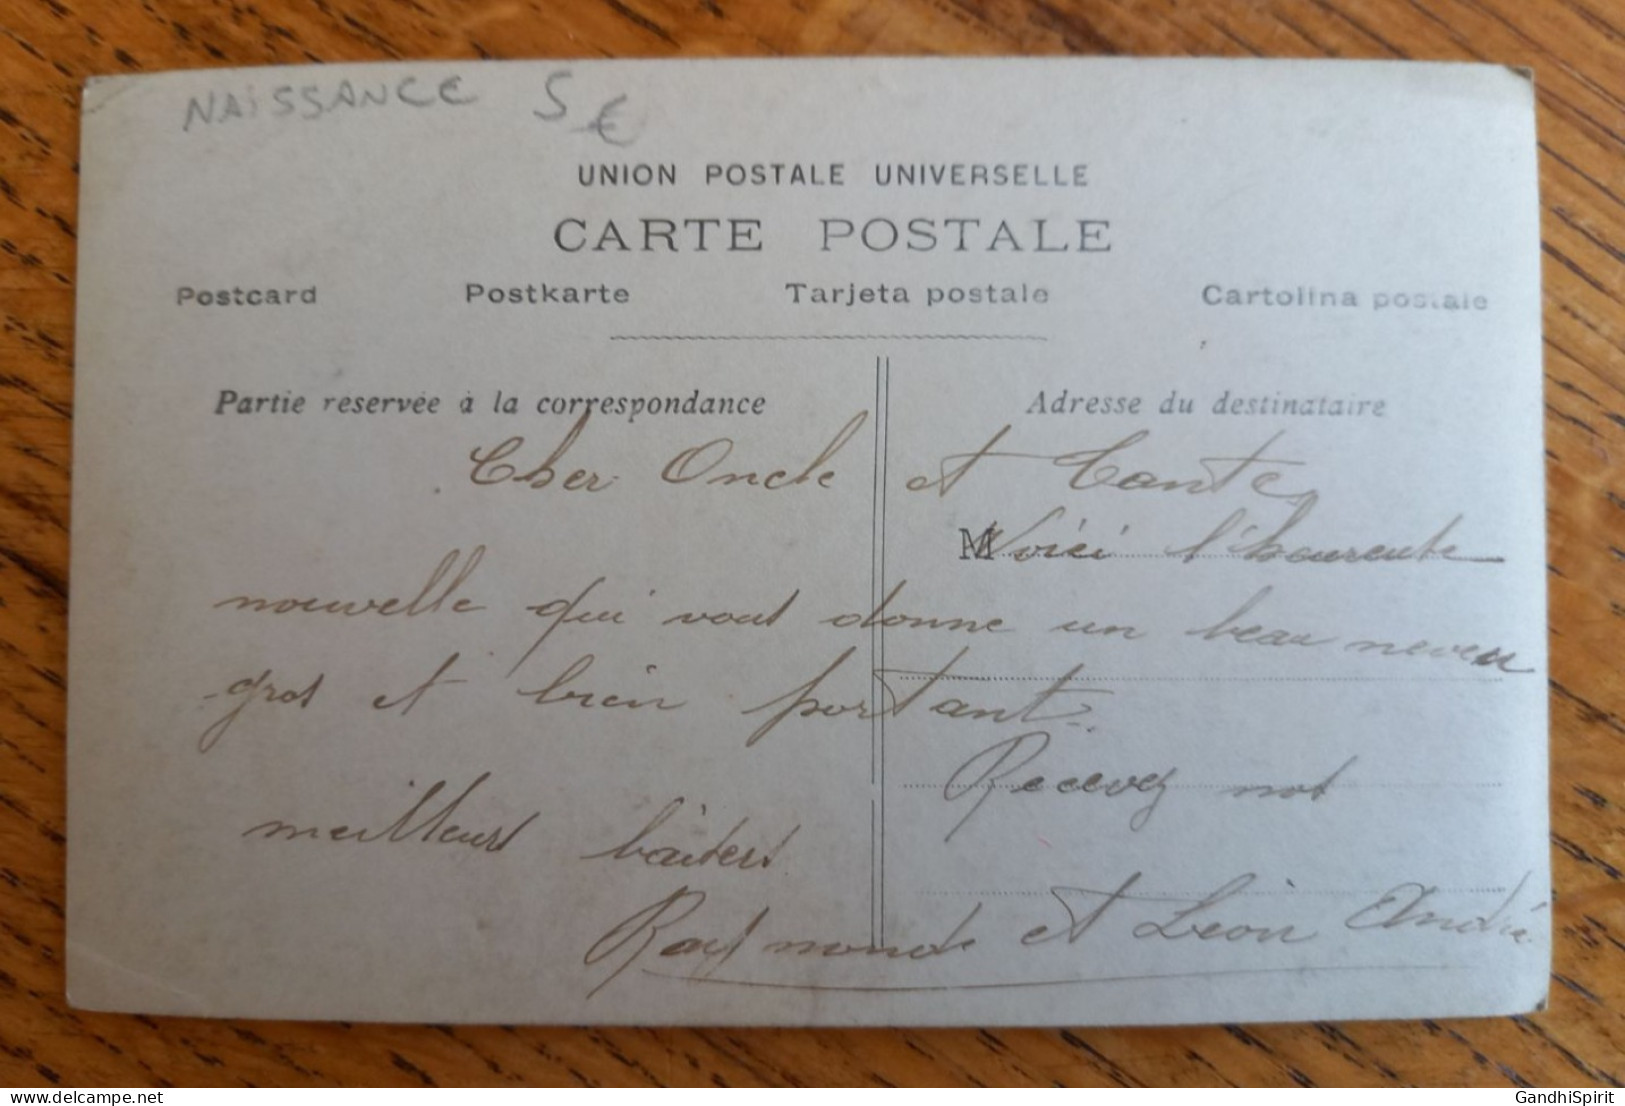 NAISSANCE 5 €
UNION POSTALE UNIVERSELLE
CARTE POSTALE
Postcard Postkarte Tarjeta postale Cartolina postale
Partie reservée à la correspondance Adresse du destinataire
Cher Oncle et Tante
M Voici l'heureuse
nouvelle qui vous donne un beau neveu
gros et bien portant.
Recevez nos
meilleurs baisers
Raymonde et Léon André
delcampe.net
GandhiSpirit